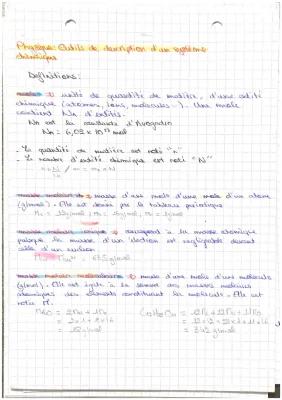 Physique: Outils de description d'un système
chimique
Définitions:
mole : unité de quantité de matière, d'une entité
chimique (atomes, ions, molécules...). Une mole
contient NA d'entités.
NA est la constante d'Avogadro
NA = 6,02 x 10²³ mol
- La quantité de matière est noté "n"
- Le nombre d'entité chimique est noté "N"
masse molaire : masse d'une mole d'un atome
(g/mol). Elle est donnée par le tableau périodique
masse molaire : correspond à la masse atomique
puisque la masse d'un électron est négligeable devant
celle d'un nucléon
masse molaire moléculaire : masse d'une mole d'une molécule
(g/mol). Elle est égale à la somme des masses molaires
atomiques des éléments constituant la molécule. Elle est
notée M.
= 18 g/mol = 342 g/mol